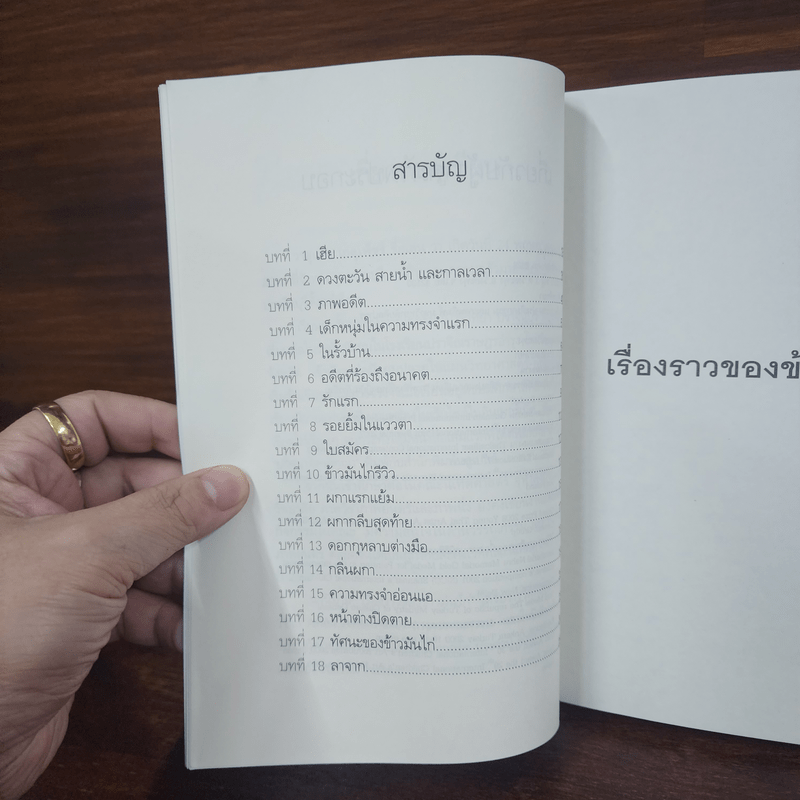 สารบัญ
บทที่ 1 เฮีย
บทที่ 2 ดวงตะวัน สายน้ำ และกาลเวลา
บทที่ 3 ภาพอดีต
บทที่ 4 เด็กหนุ่มในความทรงจำแรก
บทที่ 5 ในรั้วบ้าน
บทที่ 6 อดีตที่ร้องถึงอนาคต
บทที่ 7 รักแรก
บทที่ 8 รอยยิ้มในแววตา
บทที่ 9 ใบสมัคร
บทที่ 10 ข้าวมันไก่รีวิว
บทที่ 11 ผกาแรกแย้ม
บทที่ 12 ผกากลีบสุดท้าย
บทที่ 13 ดอกกุหลาบต่างมือ
บทที่ 14 กลิ่นผกา
บทที่ 15 ความทรงจำอ่อนแอ
บทที่ 16 หน้าต่างปิดตาย
บทที่ 17 ทัศนะของข้าวมันไก่
บทที่ 18 ลาจาก
เรื่องราวของ